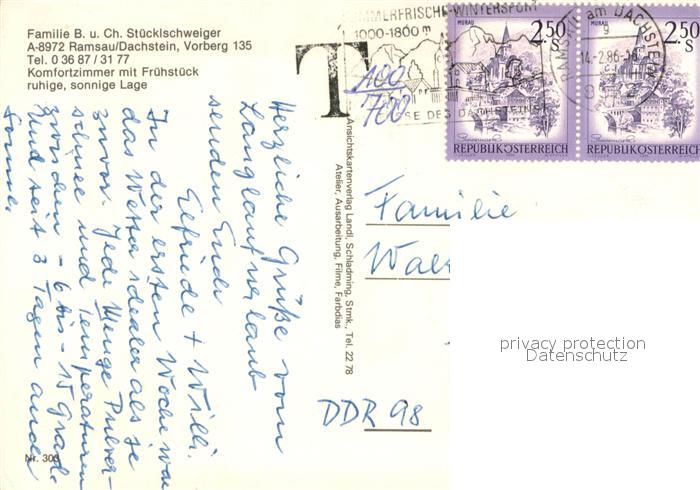 Familie B. u. Ch. Stücklschweiger
A-8972 Ramsau/Dachstein, Vorberg 135
Tel. 0 36 87 / 31 77
Komfortzimmer mit Frühstück
ruhige, sonnige Lage
SOMMERFRISCHE-WINTERSPORT
1000-1800 m
T
100
700
MURAU
2.50 S
REPUBLIK ÖSTERREICH
MURAU
2.50 S
REPUBLIK ÖSTERREICH
RAMSAU am DACHSTEIN
14.-2.86-18
Herzliche Grüße vom
Langlaufurlaub
senden Euch
Elfriede + Willi.
In der ersten Woche war
das Wetter idealer als je
zuvor. Jede Menge Pulver-
schnee und Temperaturen
zwischen - 6 bis - 15 Grad.
Und seit 3 Tagen auch
Sonne.
Ansichtskartenverlag Landl, Schladming, Stmk., Tel. 22 78
Atelier, Ausarbeitung, Filme, Farbdias
Familie
DDR 98
Nr. 303
privacy protection
Datenschutz